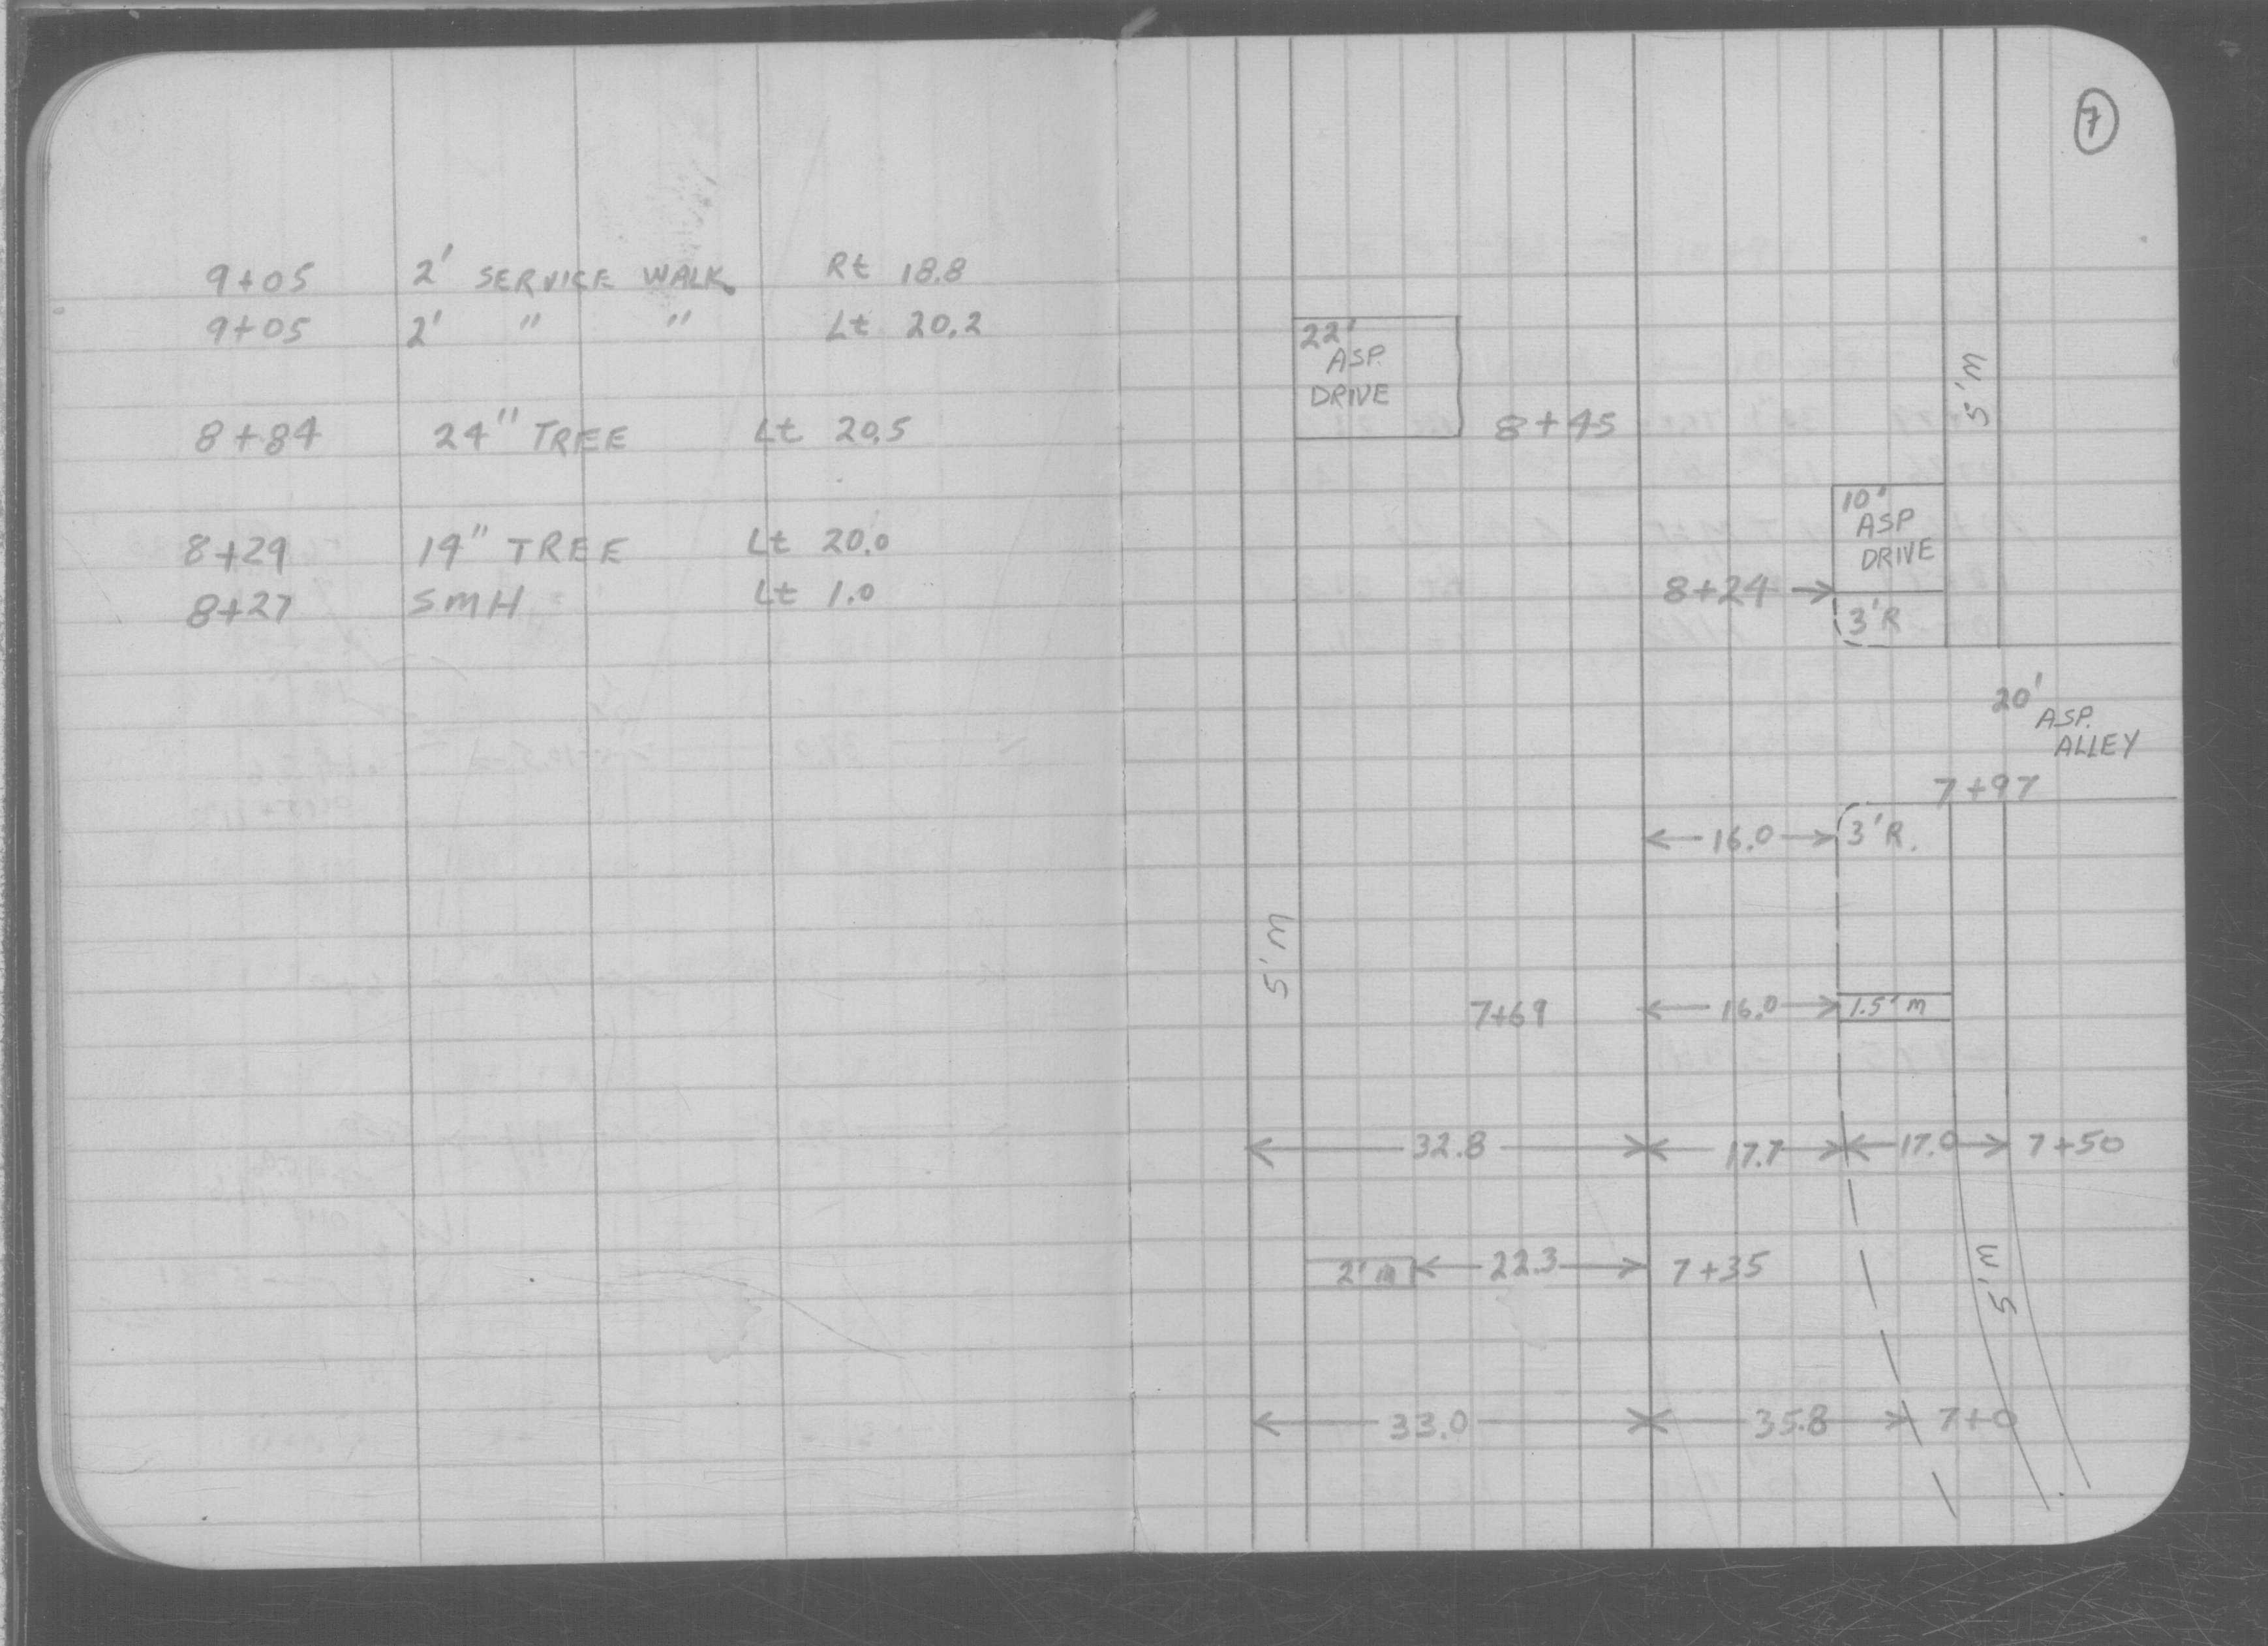 9+05 2' SERVICE WALK Rt 18.8
9+05 2' " " Lt 20.2
8+84 24" TREE Lt 20.5
8+29 19" TREE Lt 20.0
8+27 SMH Lt 1.0
7
22'
ASP.
DRIVE
8+45
5'm
10'
ASP
DRIVE
8+24
3'R
20'
ASP.
ALLEY
7+97
16.0 3'R.
5'm
7+69 16.0 1.5'm
32.8 17.7 17.0 7+50
2'm 22.3 7+35
5'm
33.0 35.8 7+0